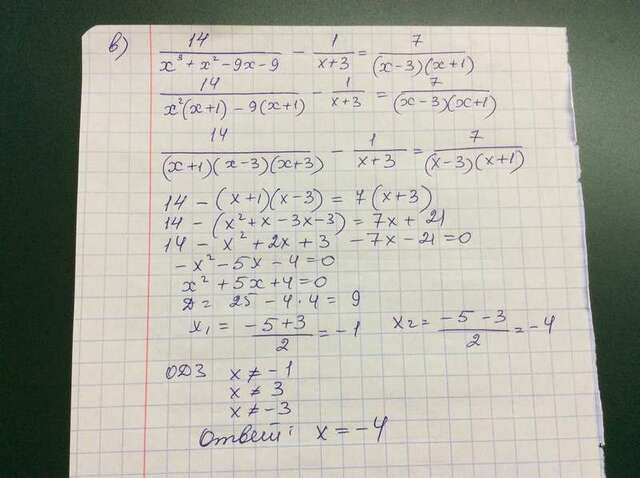 в) 14/(x³ + x² - 9x - 9) - 1/(x+3) = 7/((x-3)(x+1))
14/(x²(x+1) - 9(x+1)) - 1/(x+3) = 7/((x-3)(x+1))
14/((x+1)(x-3)(x+3)) - 1/(x+3) = 7/((x-3)(x+1))
14 - (x+1)(x-3) = 7(x+3)
14 - (x² + x - 3x - 3) = 7x + 21
14 - x² + 2x + 3 - 7x - 21 = 0
-x² - 5x - 4 = 0
x² + 5x + 4 = 0
D = 25 - 4·4 = 9
x₁ = (-5+3)/2 = -1 x₂ = (-5-3)/2 = -4
ОДЗ x ≠ -1
x ≠ 3
x ≠ -3
Ответ: x = -4